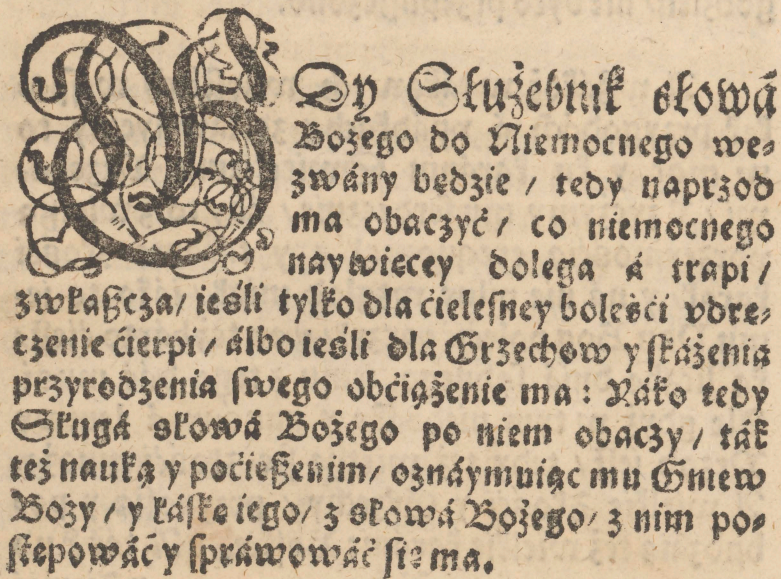 GDy Służebnik słowá
Bożego do Niemocnego we⸗
zwány będzie / tedy naprzod
ma obaczyć / co niemocnego
naywięcey dolega á trapi /
zwłaszcza / ieśli tylko dla ćielesney boleśći vdrę⸗
czenie ćierpi / álbo ieśli dla Grzechow y skáżenia
przyrodzenia swego obćiążenie ma : Jáko tedy
Sługá słowá Bożego po niem obaczy / ták
też nauką y poćieszenim / oznáymuiąc mu Gniew
Boży / y łáskę iego / z słowá Bożego / z nim po⸗
stępowáć y spráwowáć się ma.